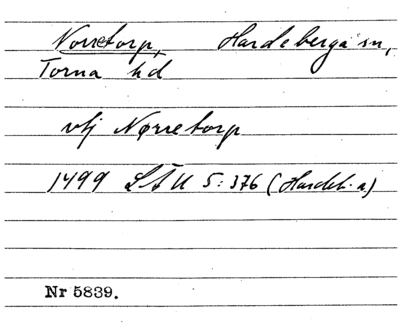 Norretorp, Hardeberga sn,
Torna hd
vtj Nørretorp
1499 LÄU 5:376 (Hardeb-a)
Nr 5839.